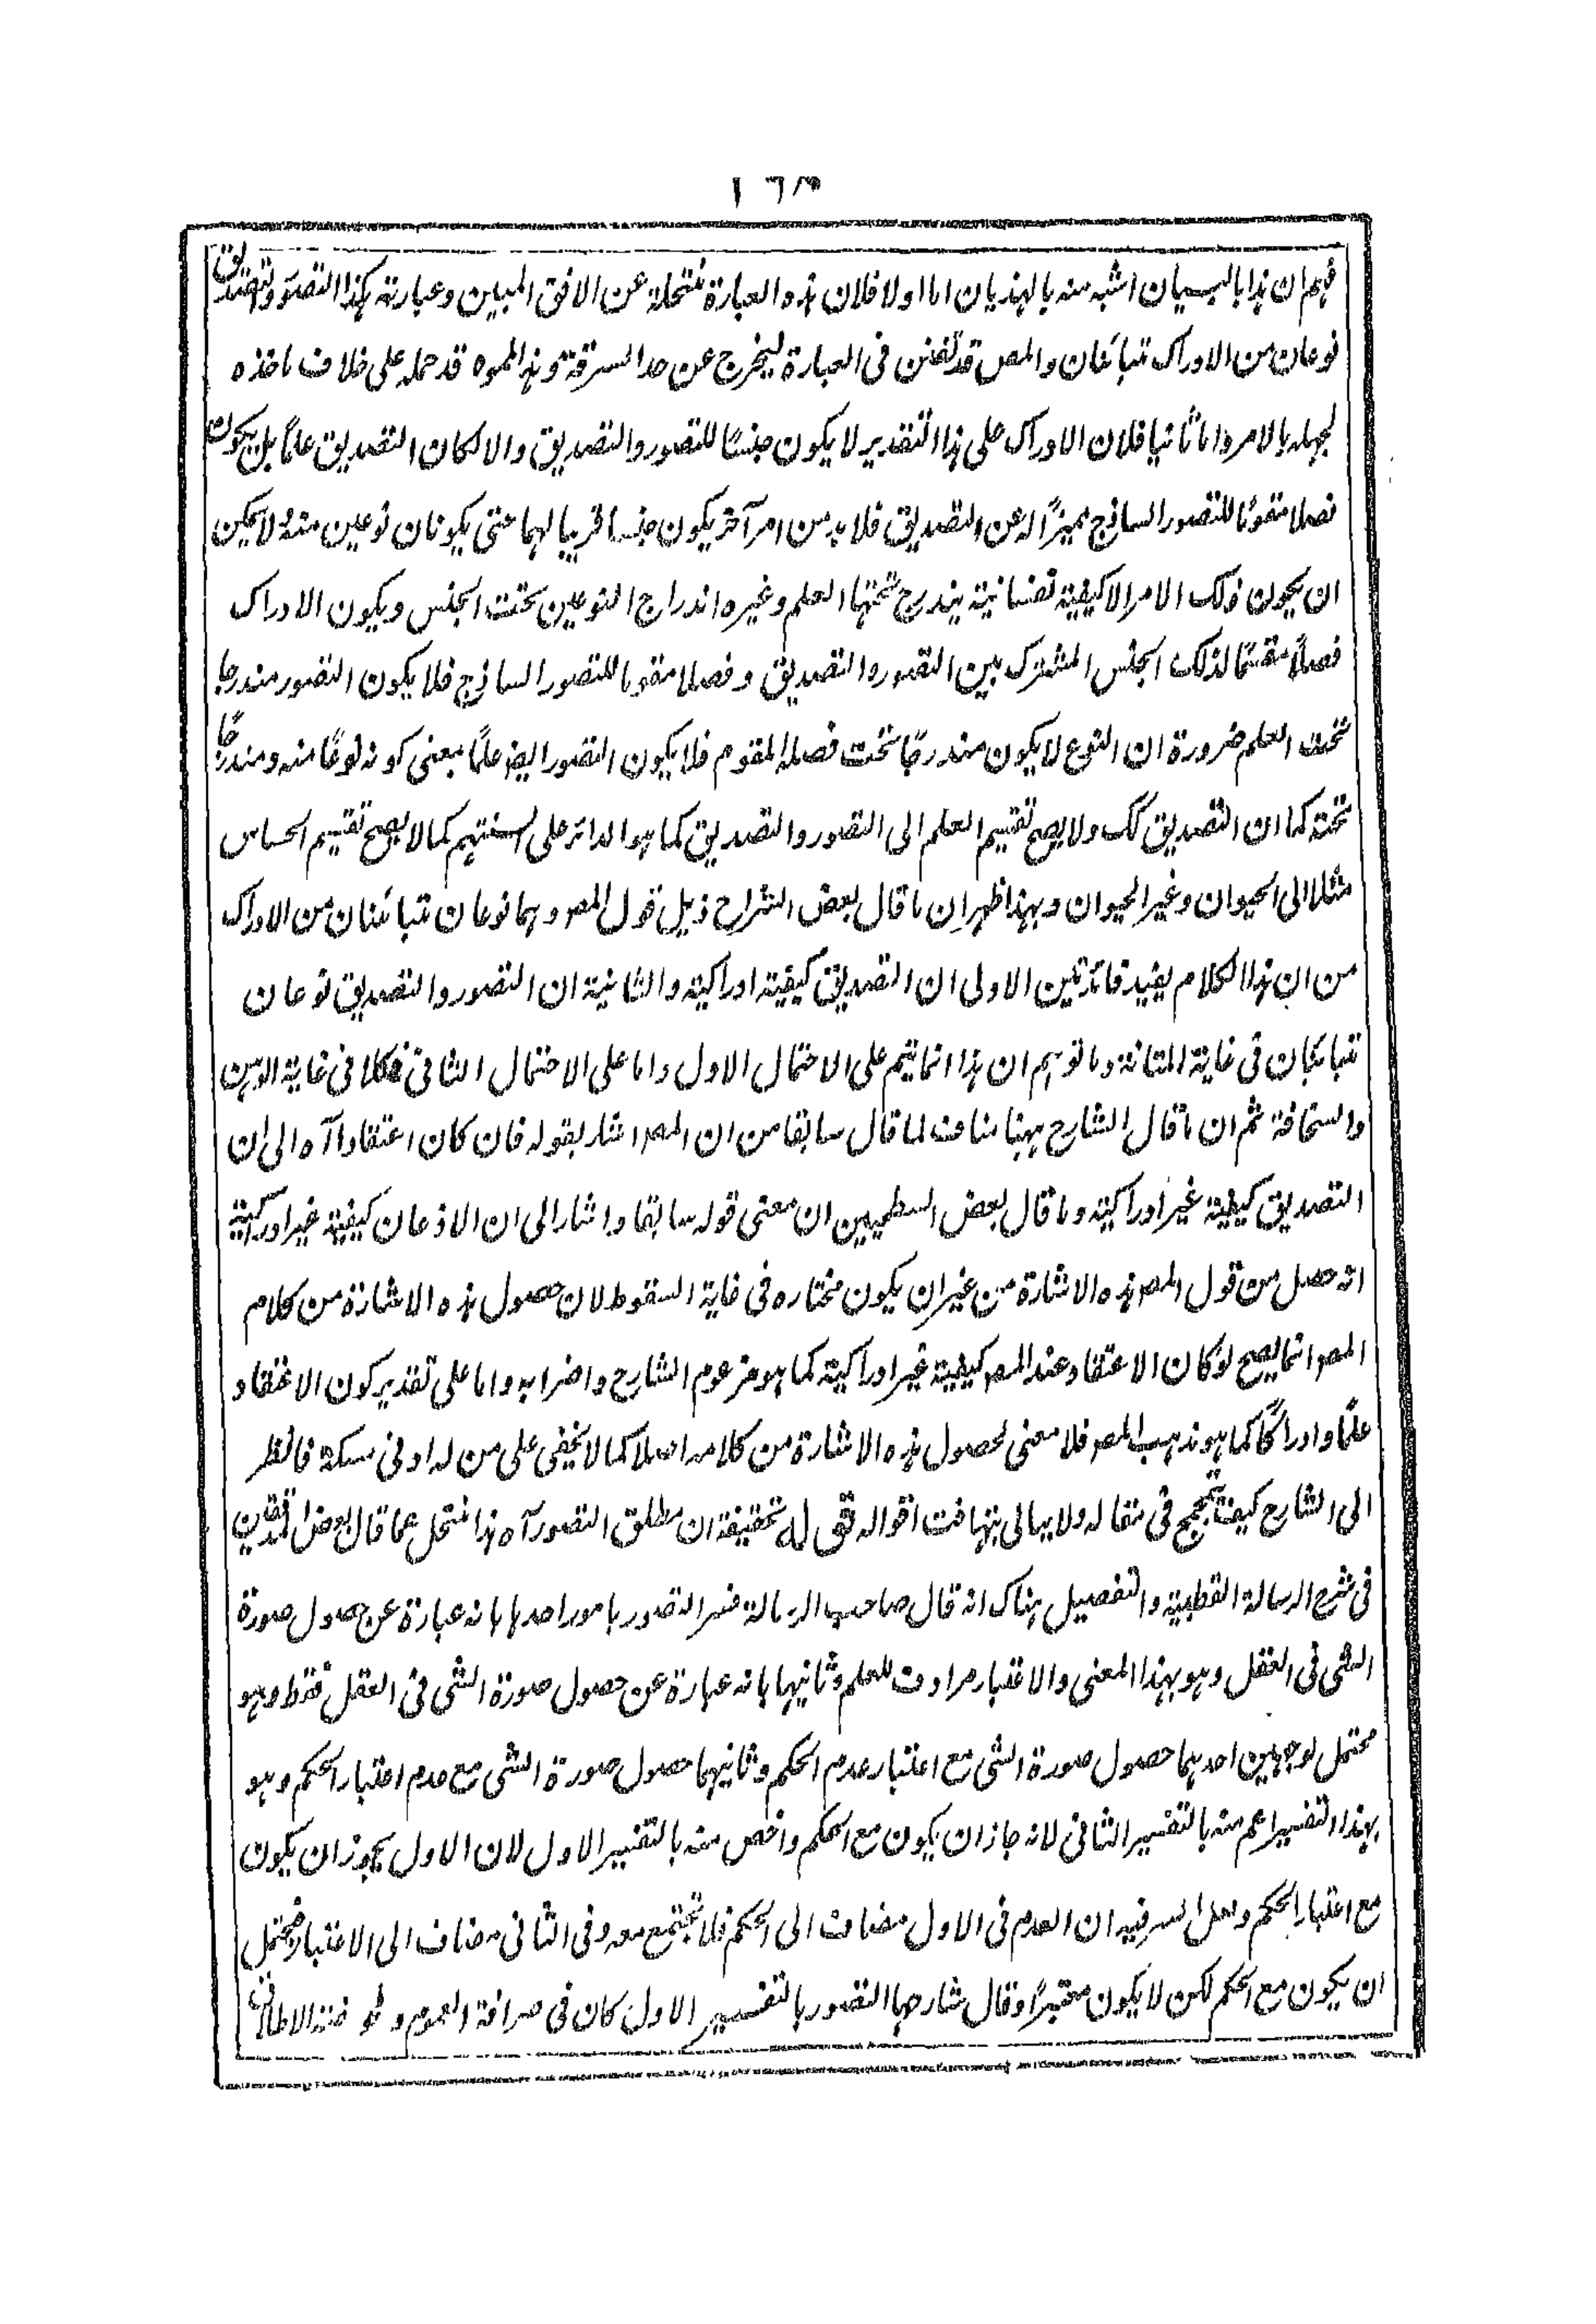 ١٦٣
فهم ان هذا بالبيان اشبه منه بالهذيان اما اولا فلان هذه العبارة منتحلة عن الافق المبين وعبارته هكذا التصور والتصديق
نوعان من الادراك متبائنان والمص قد تفنن فى العبارة ليخرج عن حد السرقة وهذا المموه قد حمله على خلاف ماخذه
لجهله بالامر واما ثانيا فلان الادراك على هذا التقدير لا يكون جنسًا للتصور والتصديق والا لكان التصديق علمًا بل يكون
فصلا مقومًا للتصور الساذج مميزًا له عن التصديق فلا بد من امر آخر يكون جنسا قريبا لهما حتى يكونان نوعين منه ولا يمكن
ان يكون ذلك الامر الا كيفية نفسانية يندرج تحتها العلم وغيره اندراج النوعين تحت الجنس ويكون الادراك
فصلًا مقسمًا لذلك الجنس المشترك بين التصور والتصديق وفصلا مقوما للتصور الساذج فلا يكون التصور مندرجا
تحت العلم ضرورة ان النوع لا يكون مندرجًا تحت فصله المقوم فلا يكون التصور ايضا علمًا بمعنى كونه نوعًا منه ومندرجًا
تحته كما ان التصديق كك ولا يصح تقسيم العلم الى التصور والتصديق كما هو الدائر على السنتهم كما لا يصح تقسيم الحساس
مثلا الى الحيوان وغير الحيوان وبهذا ظهر ان ما قال بعض الشراح ذيل قول المص وهما نوعان متبائنان من الادراك
من ان هذا الكلام يفيد فائدتين الاولى ان التصديق كيفية ادراكية والثانية ان التصور والتصديق نوعان
متبائنان فى غاية المتانة وما توهم ان هذا انما يتم على الاحتمال الاول واما على الاحتمال الثانى فكلا فى غاية الوهن
والسخافة ثم ان ما قال الشارح ههنا مناف لما قال سابقا من ان المص اشار بقوله فان كان اعتقادا آه الى ان
التصديق كيفية غير ادراكية وما قال بعض السطحيين ان معنى قوله سابقا واشار الى ان الاذعان كيفية غير ادراكية
انه حصل من قول المص هذه الاشارة من غير ان يكون مختاره فى غاية السقوط لان حصول هذه الاشارة من كلام
المص انما يصح لو كان الاعتقاد عند المص كيفية غير ادراكية كما هو مزعوم الشارح واضرابه واما على تقدير كون الاعتقاد
علمًا وادراكًا كما هو مذهب المص فلا معنى لحصول هذه الاشارة من كلامه اصلا كما لا يخفى على من له ادنى مسكة فانظر
الى الشارح كيف يتمجمج فى مقاله ولا يبالى بتهافت اقواله قوله تحقيقه ان مطلق التصور آه هذا منتحل عما قال بعض المدققين
فى شرح الرسالة القطبية والتفصيل هناك انه قال صاحب الرسالة فسر التصور بامور احدها بانه عبارة عن حصول صورة
الشى فى العقل وهو بهذا المعنى والاعتبار مرادف للعلم وثانيها بانه عبارة عن حصول صورة الشى فى العقل فقط وهو
محتمل لوجهين احدهما حصول صورة الشى مع اعتبار عدم الحكم وثانيهما حصول صورة الشى مع عدم اعتبار الحكم وهو
بهذا التفسير اعم منه بالتفسير الثانى لانه جاز ان يكون مع الحكم واخص منه بالتفسير الاول لان الاول يجوز ان يكون
مع اعتبار الحكم ولعل السر فيه ان العدم فى الاول مضاف الى الحكم فلا تجتمع معه وفى الثانى مضاف الى الاعتبار فيحتمل
ان يكون مع الحكم لكن لا يكون معتبرًا وقال شارحها التصور بالتفسير الاول كان فى صرافة العموم و الاطلاق